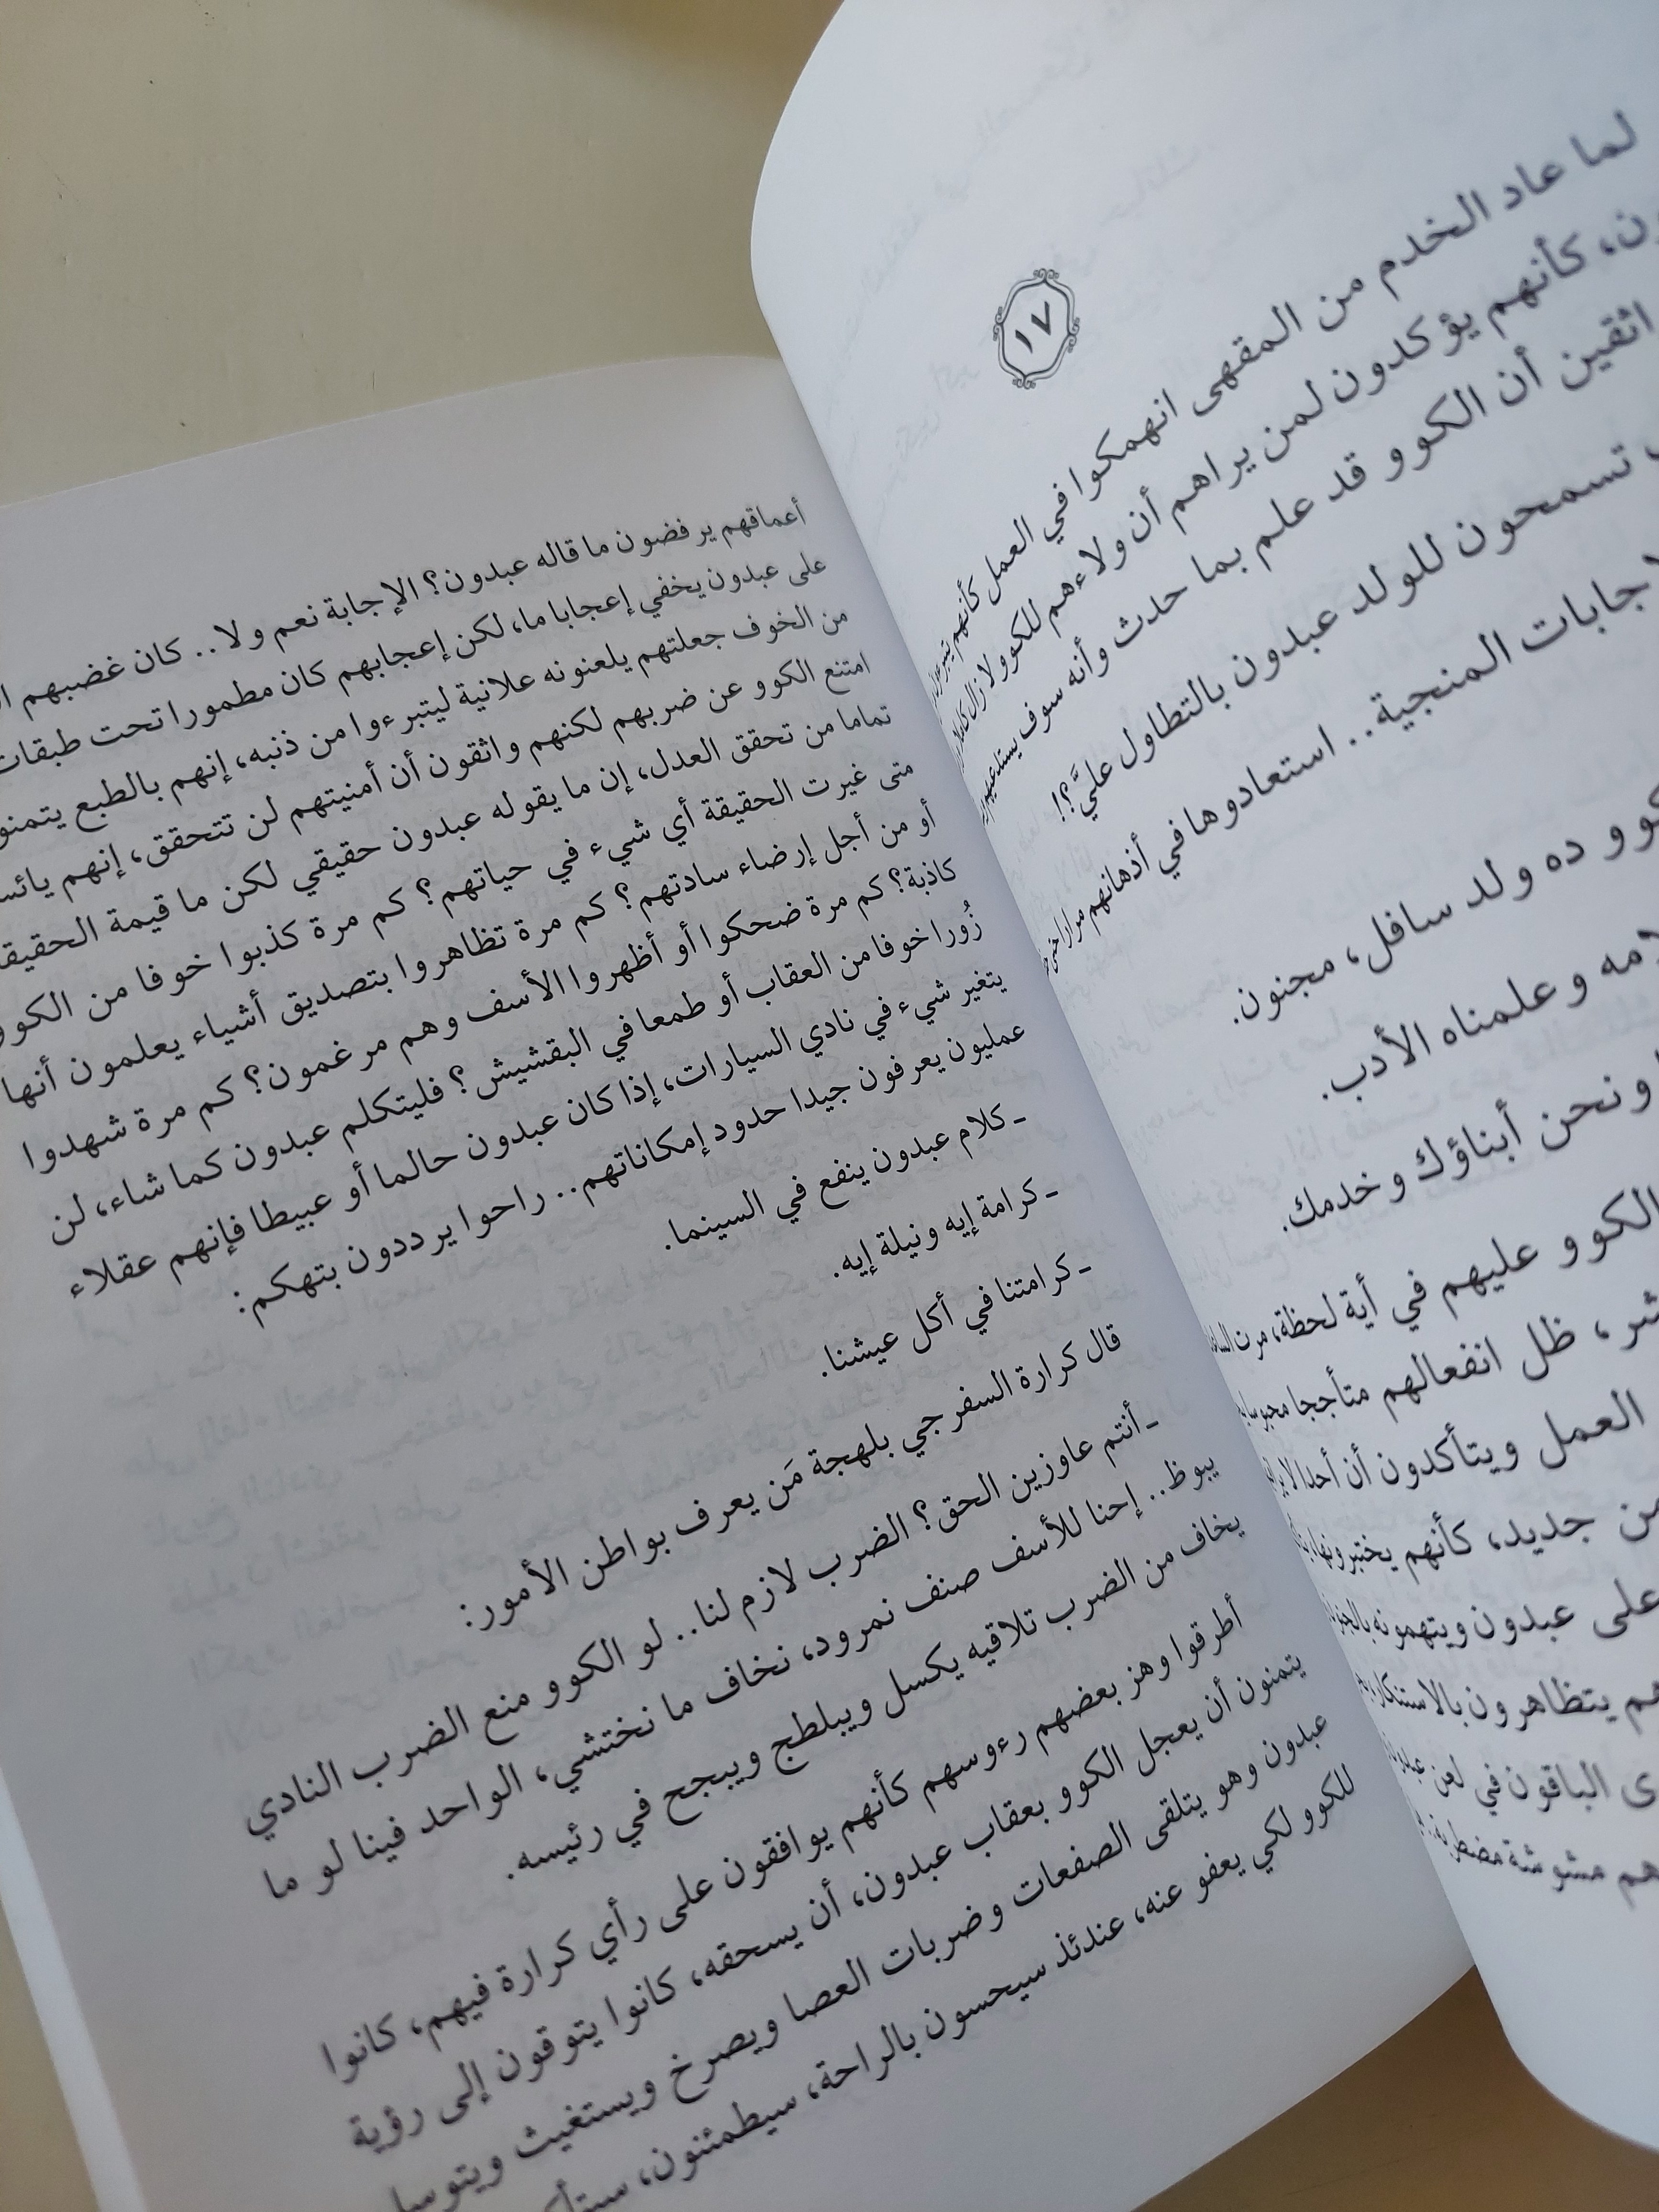 ١٧
لما عاد الخدم من المقهى انهمكوا في العمل كأنهم
كأنهم يؤكدون لمن يراهم أن ولاءهم للكوو لا زال كاملا
أن الكوو قد علم بما حدث وأنه سوف يستدعيهم
تسمحون للولد عبدون بالتطاول عليَّ؟!
المنجية.. استعادوها في أذهانهم مرارا حتى
ده ولد سافل، مجنون.
وعلمناه الأدب.
ونحن أبناؤك وخدمك.
الكوو عليهم في أية لحظة، مرت
ظل انفعالهم متأججا محبوسا
العمل ويتأكدون أن أحدا لا
من جديد، كأنهم يختبرونها
على عبدون ويتهمونه
يتظاهرون بالاستنكار
الباقون في لعن
مشوشة مضطربة
أعماقهم يرفضون ما قاله عبدون؟ الإجابة نعم ولا.. كان غضبهم
على عبدون يخفي إعجابا ما، لكن إعجابهم كان مطمورا تحت طبقات
من الخوف جعلتهم يلعنونه علانية ليتبرءوا من ذنبه، إنهم بالطبع
امتنع الكوو عن ضربهم لكنهم واثقون أن أمنيتهم لن تتحقق، إنهم
تماما من تحقق العدل، إن ما يقوله عبدون حقيقي لكن ما قيمة
متى غيرت الحقيقة أي شيء في حياتهم؟ كم مرة كذبوا خوفا من الكوو
أو من أجل إرضاء سادتهم؟ كم مرة تظاهروا بتصديق أشياء يعلمون أنها
كاذبة؟ كم مرة ضحكوا أو أظهروا الأسف وهم مرغمون؟ كم مرة شهدوا
زُورا خوفا من العقاب أو طمعا في البقشيش؟ فليتكلم عبدون كما شاء، لن
يتغير شيء في نادي السيارات، إذا كان عبدون حالما أو عبيطا فإنهم عقلاء
عمليون يعرفون جيدا حدود إمكاناتهم.. راحوا يرددون بتهكم:
ـ كلام عبدون ينفع في السينما.
ـ كرامة إيه ونيلة إيه.
ـ كرامتنا في أكل عيشنا.
قال كرارة السفرجي بلهجة مَن يعرف بواطن الأمور:
ـ أنتم عاوزين الحق؟ الضرب لازم لنا.. لو الكوو منع الضرب النادي
يبوظ.. إحنا للأسف صنف نمرود، نخاف ما نختشي، الواحد فينا لو ما
يخاف من الضرب تلاقيه يكسل ويبلطج ويبجح في رئيسه.
أطرقوا وهز بعضهم رءوسهم كأنهم يوافقون على رأي كرارة فيهم، كانوا
يتمنون أن يعجل الكوو بعقاب عبدون، أن يسحقه، كانوا يتوقون إلى رؤية
عبدون وهو يتلقى الصفعات وضربات العصا ويصرخ ويستغيث
للكوو لكي يعفو عنه، عندئذ سيحسون بالراحة، سيطمئنون،